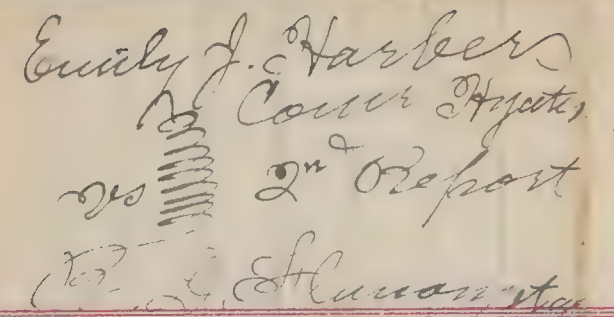 Emily J. Harber
Comr Hyatts,
vs 2nd Report